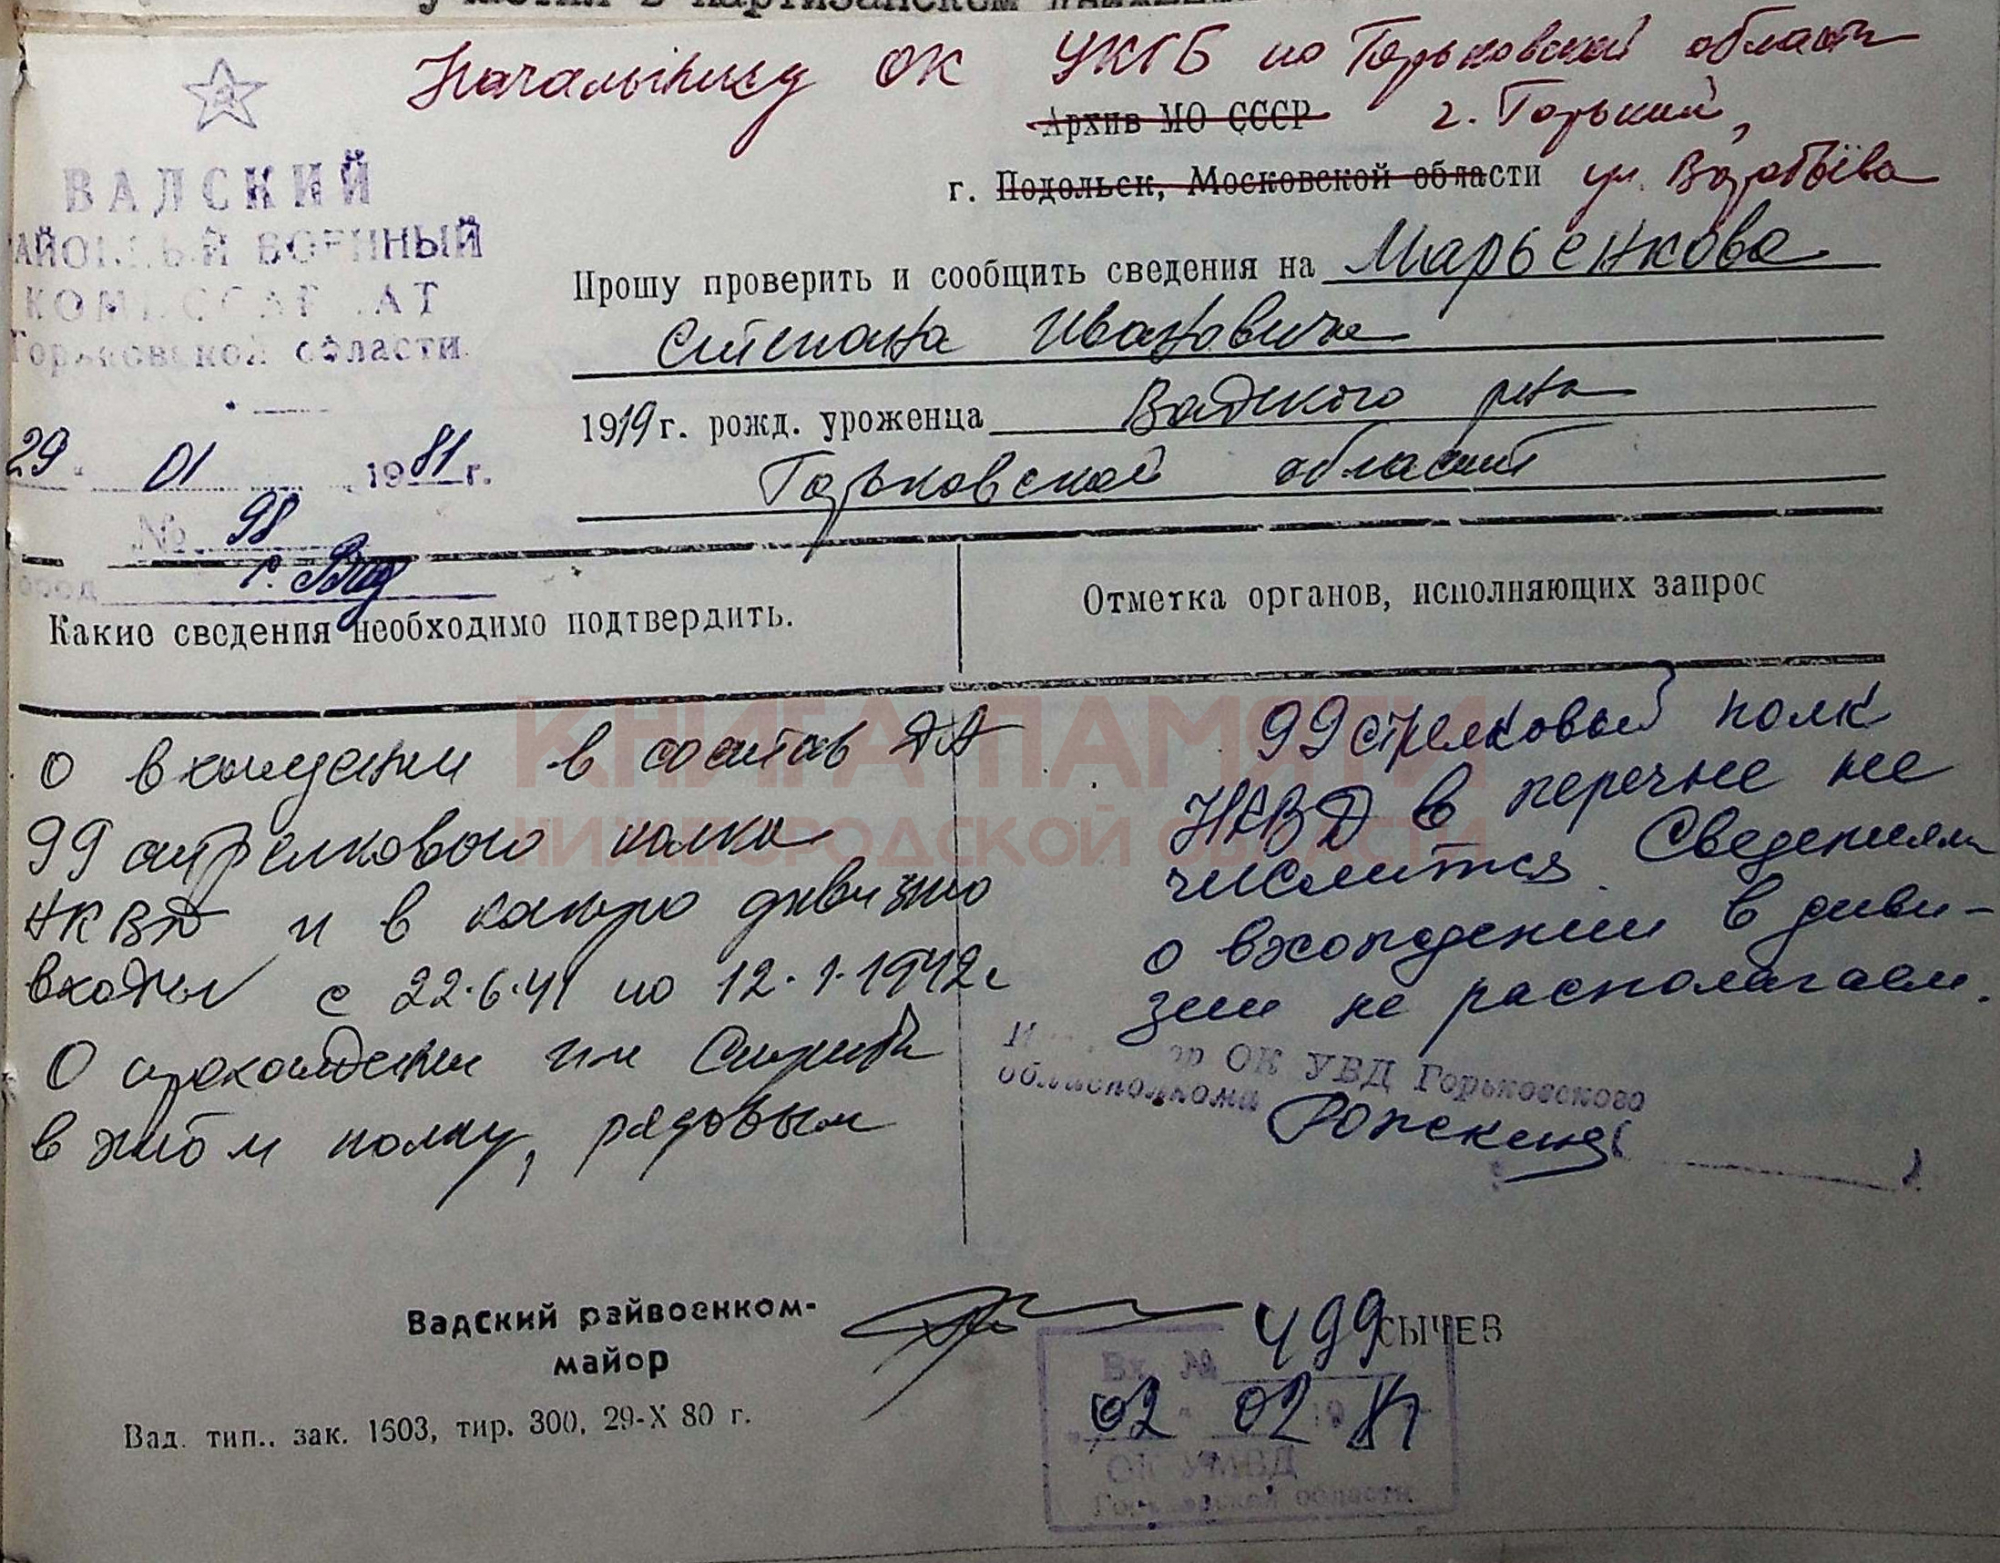 участия в партизанском движении
Начальнику ОК УКГБ по Горьковской области
Архив МО СССР г. Горький,
г. Подольск, Московской области ул. Воробьёва
ВАДСКИЙ
РАЙОННЫЙ ВОЕННЫЙ
КОМИССАРИАТ
Горьковской области
29 01 1981 г.
№ 98
город г. Вад
Прошу проверить и сообщить сведения на Марьенкова
Степана Ивановича
1919 г. рожд. уроженца Вадского р-на
Горьковской области
Какие сведения необходимо подтвердить.
Отметка органов, исполняющих запрос
КНИГА ПАМЯТИ
НИЖЕГОРОДСКОЙ ОБЛАСТИ
о вхождении в состав ДА
99 стрелкового полка
НКВД и в какую дивизию
входил с 22.6.41 по 12.1.1942 г
О прохождении им службы
в этом полку, рядовым
99 стрелковый полк
НКВД в перечне не
числится. Сведениями
о вхождении в диви-
зии не располагаем.
ОК УВД Горьковского
облисполкома
Вадский райвоенком-
майор
СЫЧЕВ
Вх. № 499
02 02 1981
ОК УМВД
Горьковской области
Вад. тип., зак. 1603, тир. 300, 29-X 80 г.